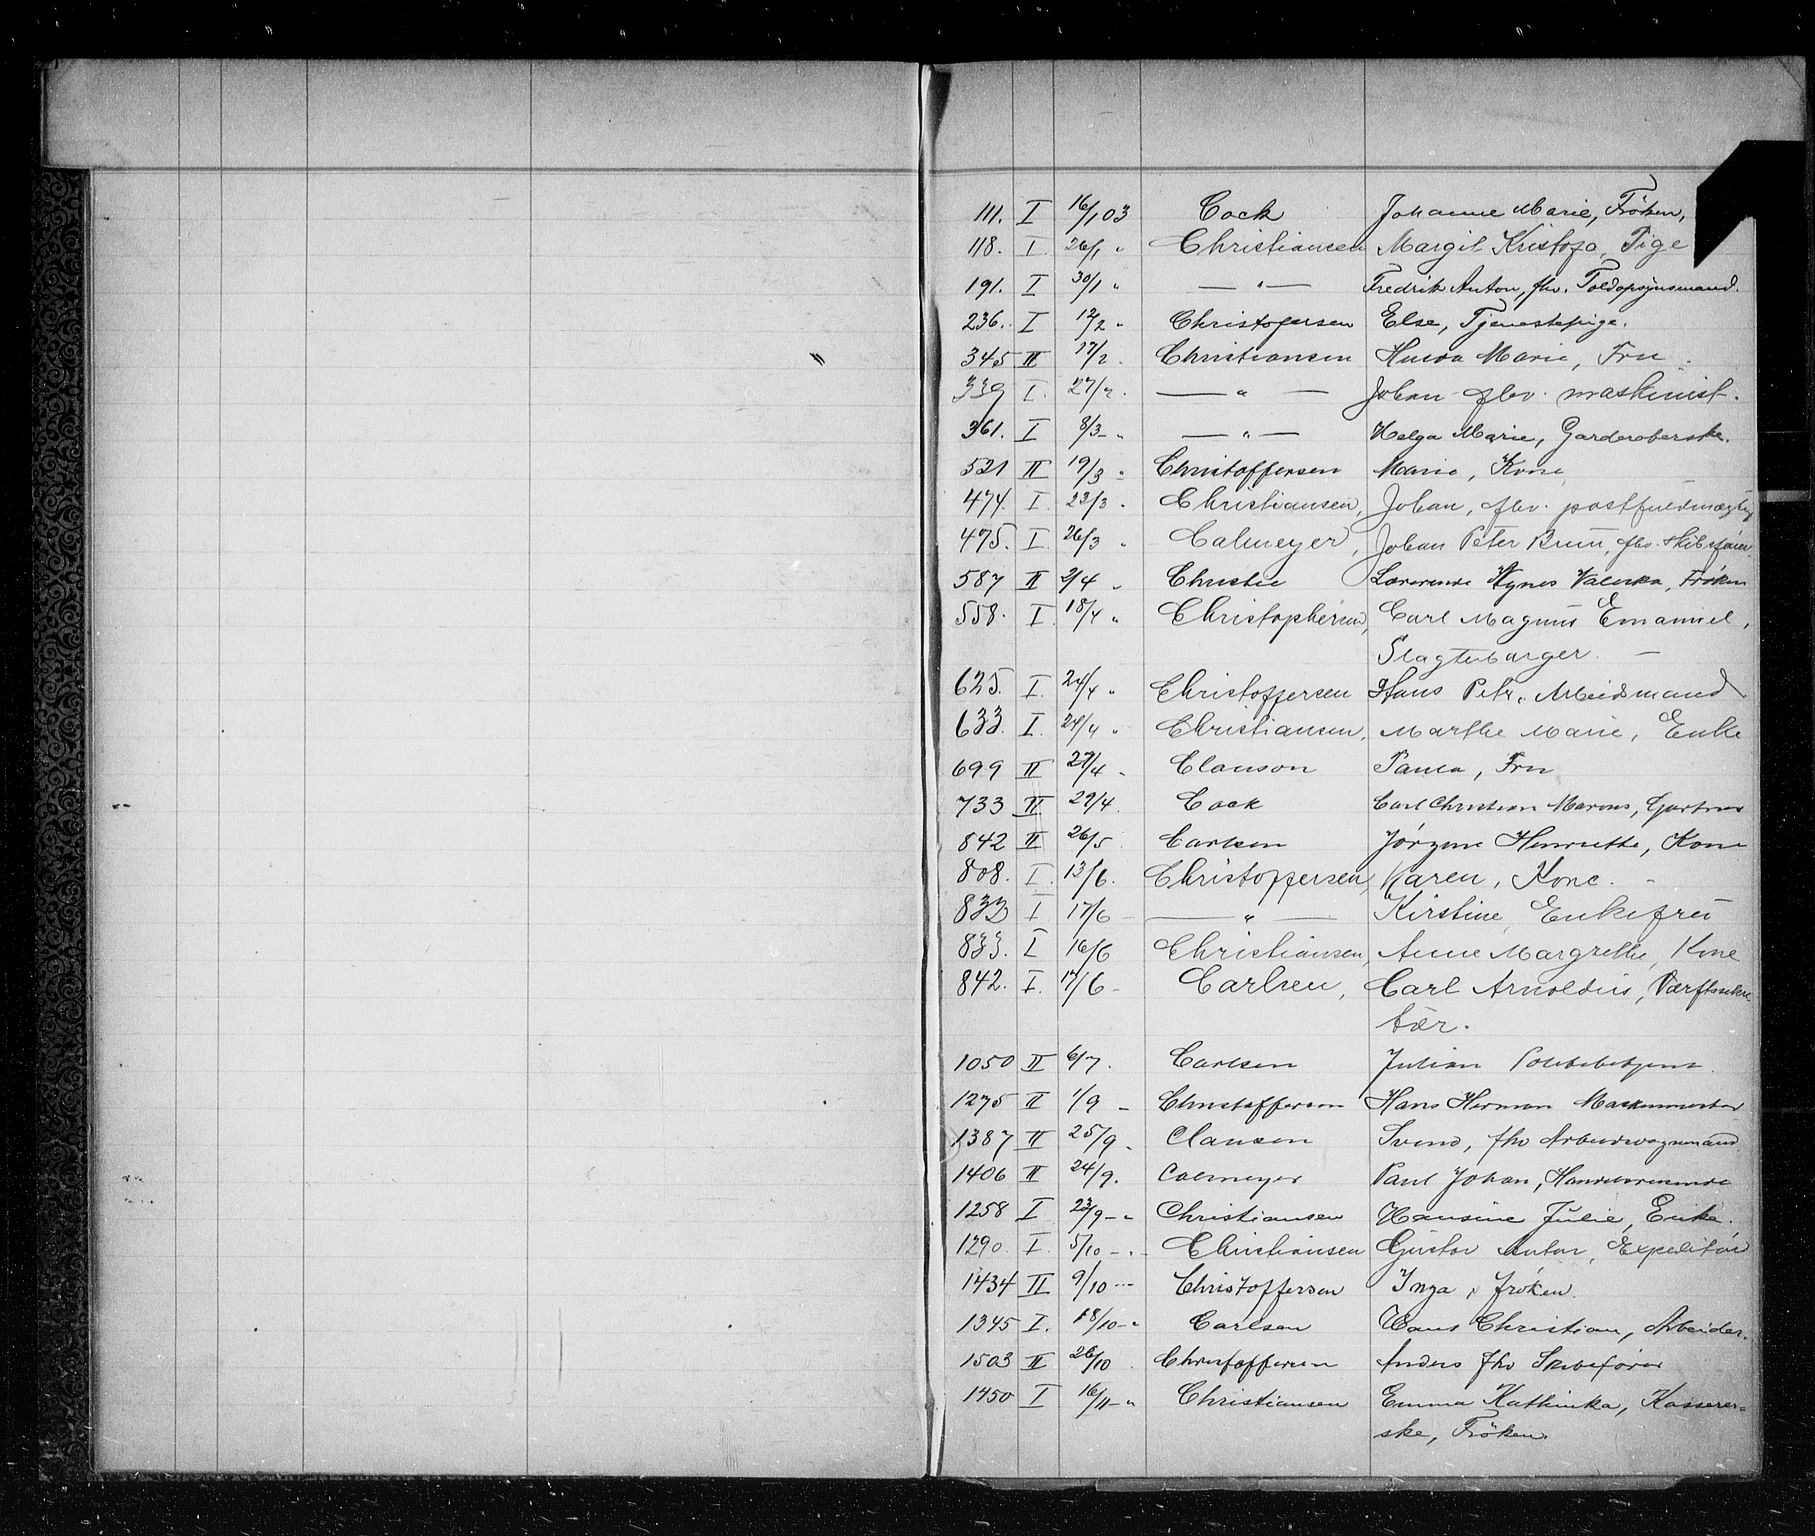 111. I 16/1 03 Cock Johanne Marie, Frøken,
118. I. 26/1 " Christiansen Margit Kristofa, Pige
191. I 30/1 " — " — Fredrik Anton, fhv. Toldopsynsmand.
236. I 12/2 " Christofersen Else, Tjenestepige.
345 II 17/2 . Christiansen Hulda Marie, Fru
339 I. 27/2 . — " — Johan fhv. maskinist.
361. I 8/3 - " — " — Helga Marie, Garderoberske.
521 II 19/3 " Christoffersen Marie, Kone
474. I. 23/3 . Christiansen, Johan, fhv. postfuldmægtig
475. I. 26/3 " Calmeyer, Johan Peter Brun, fhv. skibsfører
587 II 2/4 " Christie Lærerinde Agnes Valeska, Frøken
558. I. 18/4 " Christophersen, Carl Magnus Emanuel,
Slagteborger. —
625. I. 24/4 " Christoffersen Hans Petr. Arbeidsmand
633. I. 24/4 " Christiansen, Marthe Marie, Enke
699 II 27/4 . Clauson Paula, Fru
733 II 29/4 . Cock Carl Christian Marius, Gartner
842 II 26/5 . Carlsen Jørgine Henriette, Kone
808. I. 13/6 . Christoffersen, Karen, Kone. -
832 I 17/6 - — " — Kirstine Enkefru
833. I. 16/6 Christiansen, Anne Margrethe, Kone
842. I. 17/6 - Carlsen, Carl Arnoldus, Værftssekre
tær.
1050 II 6/7 . Carlsen Julian Politibetjent.
1275 II 1/9 - Christoffersen Hans Herman Maskinmester
1387 II 25/9 . Clausen Svend, fhv Arbeidsvognmand
1406 II 24/9 . Calmeyer Paul Johan, Handelsreisende
1258 I 23/9 - " Christiansen Hansine Julie, Enke.
1290. I. 5/10 - . - Christiansen Gustav Anton, Expeditør
1434 II 9/10 --- Christoffersen Inga, frøken.
1345 I. 18/10 - " Carlsen Hans Christian, Arbeider.
1503 II 26/10 . Christoffersen Anders fhv Skibsfører
1450 I 16/11 - " Christiansen Emma Kathinka, Kasserer=
ske, Frøken.